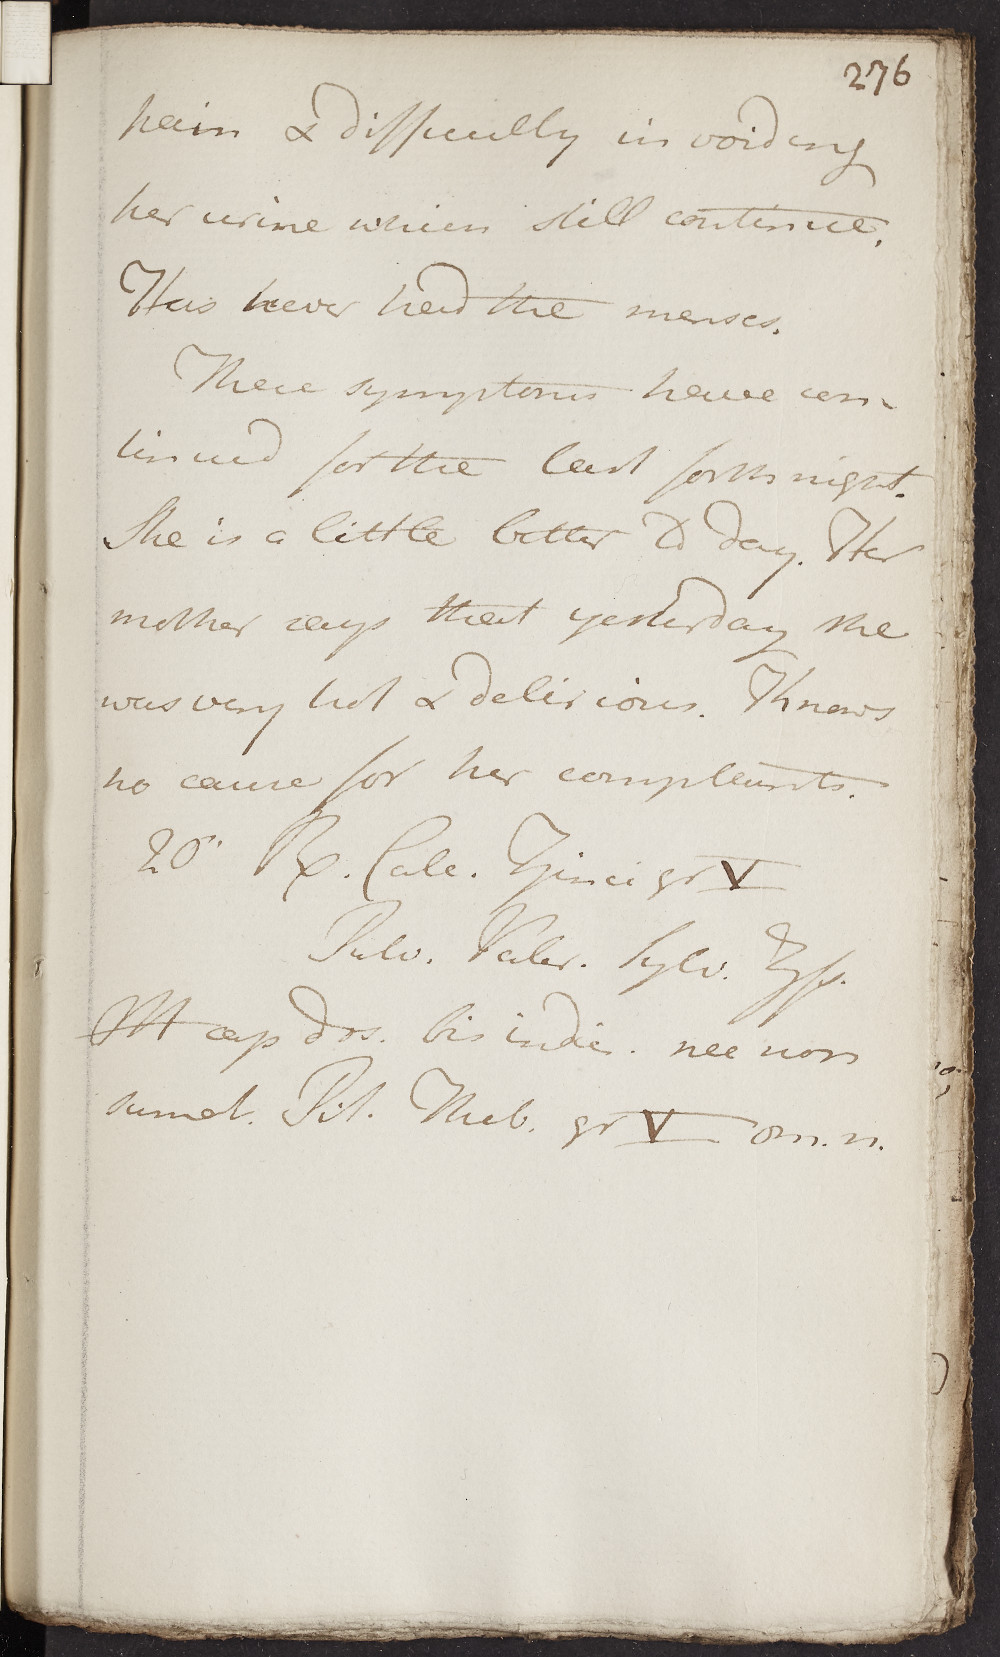 276
pain & difficulty in voiding
her urine which still continue.
Has never had the menses.
These symptoms have con-
tinued for the last forthnight.
She is a little better to day. Her
mother says that yesterday she
was very hot & delirious. Knows
no cause for her complaints.
20. Rx. Calc. Zinci gr V
Pulv. Valer. Sylv. ʒſs.
M cap dos. bis indies. nec non
sumat. Pil. Theb. gr V om. n.